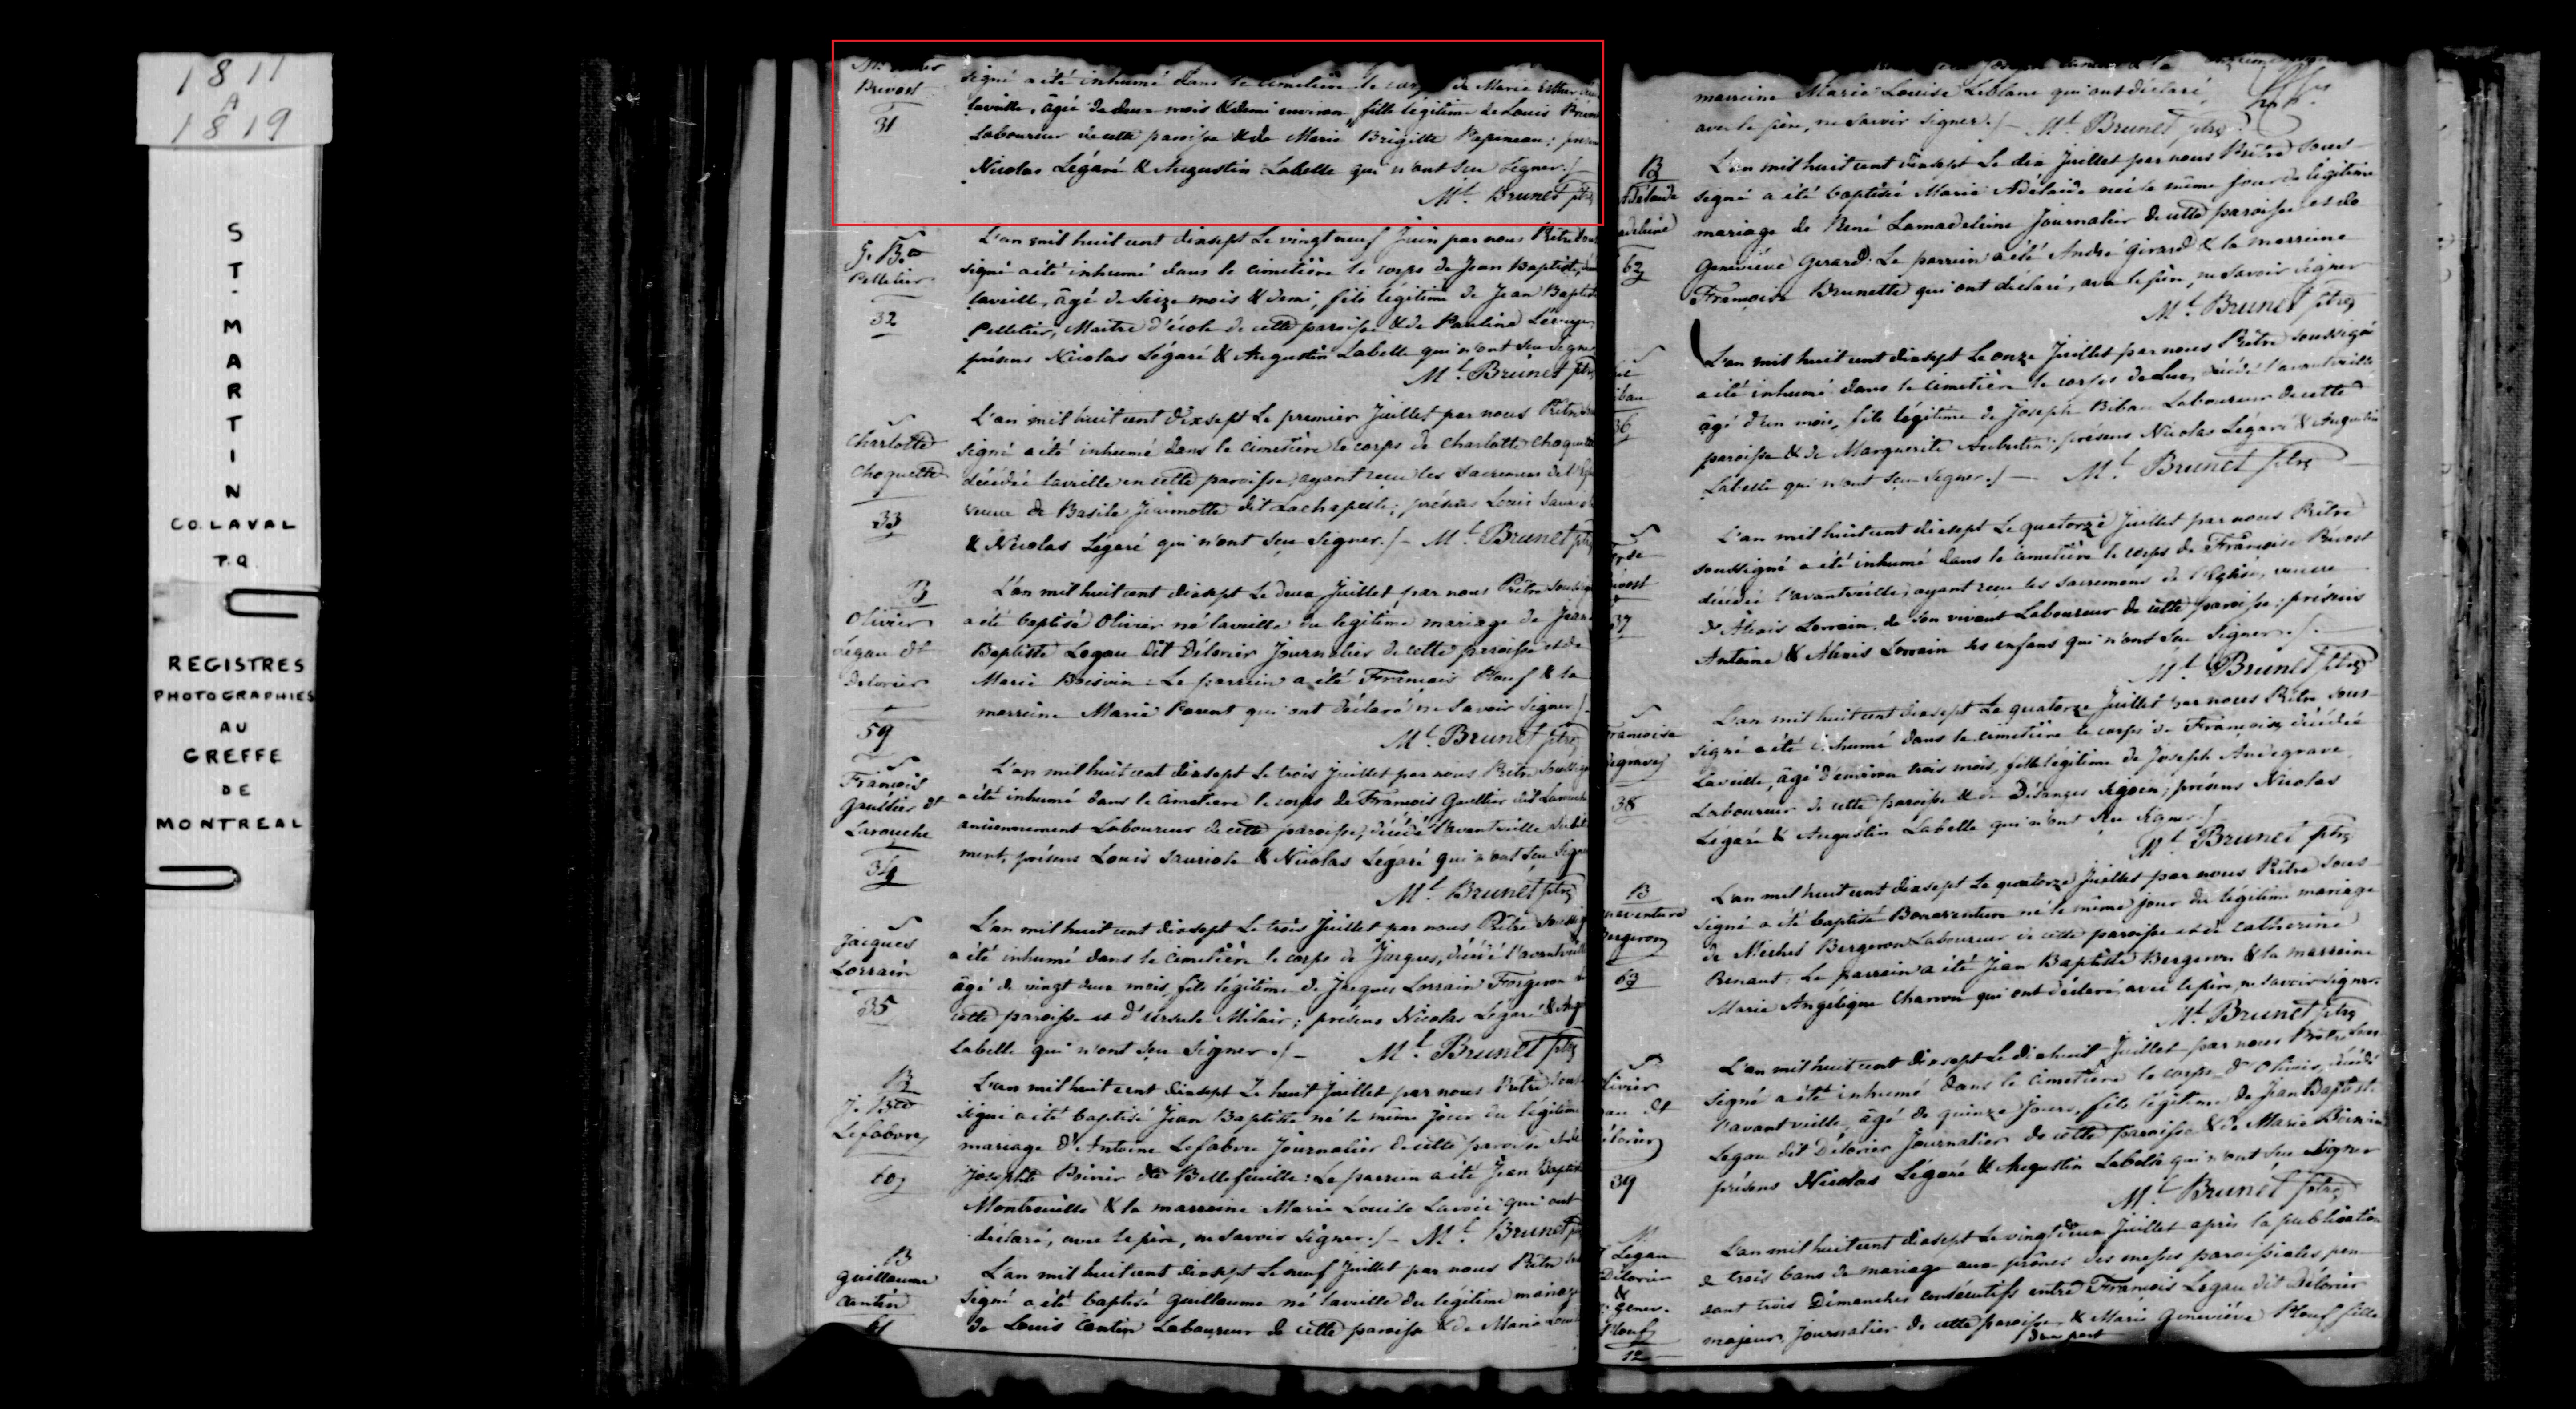 1811
A
1819
ST. MARTIN
CO. LAVAL
P.Q.
REGISTRES
PHOTOGRAPHIES
AU
GREFFE
DE
MONTREAL
Prevost
31
signé a été inhumé dans le cimetière le corps de Marie Esther
laveille, âgée de deux mois & demi environ, fille légitime de Louis
Laboureur de cette paroisse & de Marie Brigitte Papineau;
Nicolas Légaré & Augustin Labelle qui n'ont seu signer./
Mt. Brunet ptre
S
J. Bte
Pelletier
32
L'an mil huit cent dixsept Le vingt neuf Juin par nous Prêtre sous
signé a été inhumé dans le cimetière le corps de Jean Baptiste,
laveille, âgé de seize mois & demi, fils légitime de Jean Baptiste
Pelletier, Maitre d'école de cette paroisse & de Pauline
présens Nicolas Légaré & Augustin Labelle qui n'ont seu signer
Mt. Brunet ptre
S
Charlotte
Choquette
33
L'an mil huit cent dixsept Le premier Juillet par nous Prêtre
signé a été inhumé dans le cimetière le corps de Charlotte Choquette
décédée laveille en cette paroisse, ayant reçu les sacremens de
veuve de Basile Jeanmotte dit Lachapelle; présens Louis
& Nicolas Légaré qui n'ont seu signer./- Mt. Brunet ptre
B
Olivier
Légau dt
Delorier
59
L'an mil huit cent dixsept Le deux Juillet par nous Prêtre
a été baptisé Olivier né laveille du légitime mariage de Jean
Baptiste Legau dit Délorier Journalier de cette paroisse et de
Marie Boisvin: Le parrein a été François Plouf & la
marreine Marie Parent qui ont déclaré ne savoir signer./
Mt. Brunet ptre
S
François
Gaultier dt
Larouche
34
L'an mil huit cent dixsept Le trois Juillet par nous Prêtre
a été inhumé dans le cimetiere le corps de François Gaultier dit
anciennement Laboureur de cette paroisse, décédé l'avantveille
ment, présens Louis Sauriole & Nicolas Légaré qui n'ont seu signer
Mt. Brunet ptre
S
Jacques
Lorrain
35
L'an mil huit cent dixsept Le trois Juillet par nous Prêtre
a été inhumé dans le cimetière le corps de Jacques, décédé l'avantveille
âgé de vingt deux mois, fils légitime de Jacques Lorrain Forgeron
cette paroisse et d'Ursule Milair; présens Nicolas Légaré &
Labelle qui n'ont seu signer./- Mt. Brunet ptre
B
J. Bte
Lefabvre
60
L'an mil huit cent dixsept Le huit Juillet par nous Prêtre sous
signé a été baptisé Jean Baptiste né le même jour du légitime
mariage d'Antoine Lefabvre Journalier de cette paroisse
Josephte Poirier dte Bellefeuille: Le parrein a été Jean Baptiste
Montreuille & la marreine Marie Louise Lavoie qui ont
déclaré, avec le père, ne savoir signer./- Mt. Brunet
B
Guillaume
Cantin
61
L'an mil huit cent dixsept Le neuf Juillet par nous Prêtre
signé a été baptisé Guillaume né laveille du légitime mariage
de Louis Cantin Laboureur de cette paroisse & de Marie
marreine Marie Louise Leblanc qui ont déclaré,
avec le père, ne savoir signer./- Mt. Brunet ptre
B
Adélaide
62
L'an mil huit cent dixsept Le dix Juillet par nous Prêtre sous-
signé a été baptisée Marie Adélaide née le même jour du légitime
mariage de René Lamadeleine Journalier de cette paroisse et de
Geneviève Gerard: Le parrein a été André Girard & la marreine
Françoise Brunette qui ont déclaré, avec le père, ne savoir signer
Mt. Brunet ptre
S
36
L'an mil huit cent dixsept Le onze Juillet par nous Prêtre soussigné
a été inhumé dans le cimetière le corps de Luc, décédé l'avantveille
âgé d'un mois, fils légitime de Joseph Bibau Laboureur de cette
paroisse & de Marguerite Aubertin; présens Nicolas Légaré & Augustin
Labelle qui n'ont seu signer./- Mt. Brunet ptre
S
37
L'an mil huit cent dixsept Le quatorze Juillet par nous Prêtre
soussigné a été inhumé dans le cimetière le corps de Françoise Prévost
décédée l'avantveille, ayant reçu les sacremens de l'Eglise, veuve
d'Alexis Lorrain, de son vivant Laboureur de cette paroisse; présens
Antoine & Alexis Lorrain ses enfans qui n'ont seu signer./.
Mt. Brunet ptre
S
Françoise
38
L'an mil huit cent dixsept Le quatorze Juillet par nous Prêtre sous-
signé a été inhumé dans le cimetière le corps de Françoise, décédée
laveille, âgé d'environ trois mois, fille légitime de Joseph Andegrave
Laboureur de cette paroisse & de Désanges Séguin; présens Nicolas
Légaré & Augustin Labelle qui n'ont seu signer./
Mt. Brunet ptre
B
Bergeron
63
L'an mil huit cent dixsept Le quatorze Juillet par nous Prêtre sous-
signé a été baptisé Bonaventure né le même jour du légitime mariage
de Michel Bergeron Laboureur de cette paroisse et de Catherine
Renaut: Le parrein a été Jean Baptiste Bergeron & la marreine
Marie Angélique Charron qui ont déclaré, avec le père, ne savoir signer.
Mt. Brunet ptre
S
39
L'an mil huit cent dixsept Le dixhuit Juillet par nous Prêtre sous
signé a été inhumé dans le cimetière le corps d'Olivier, décédé
l'avantveille, âgé de quinze jours, fils légitime de Jean Baptiste
Legau dit Délorier Journalier de cette paroisse & de Marie Boisvin
présens Nicolas Légaré & Augustin Labelle qui n'ont seu signer
Mt. Brunet ptre
M
Legau
Délorier
&
Genev.
Plouf
12
L'an mil huit cent dixsept Le vingt deux Juillet après la publication
de trois bans de mariage aux prônes des messes paroissiales pen-
dant trois Dimanches consécutifs entre François Legau dit Délorier
majeur, Journalier de cette paroisse, d'une part & Marie Geneviève Plouf fille